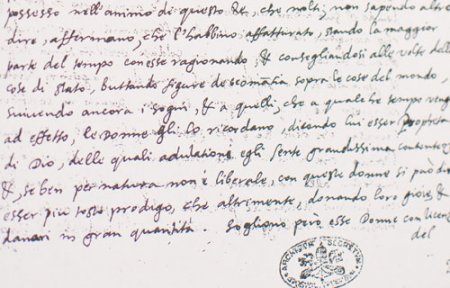 possesso nell'animo di questo &, che molti, non sapendo altro
dire, affermano, che l'habbino affatturato, stando la maggior
parte del tempo con esse ragionando, & consegliandosi alle volte delle
cose di stato, buttando figure de geomātia sopra le cose del mondo,
scrivendo ancora i sogni, & a quelli, che a qualche tempo veng
ad effetto, le Donne gli lo ricordano, dicendo lui esser Propheta
di Dio, delle quali adulationi egli sente grandissima contentez
&, se ben per natura non è liberale, con queste donne si può di
esser più tosto prodigo, che altrimente, donando loro gioie, &
danari in gran quantità. Sogliono però esse Donne con licen
del
ARCHIVUM SECRETUM